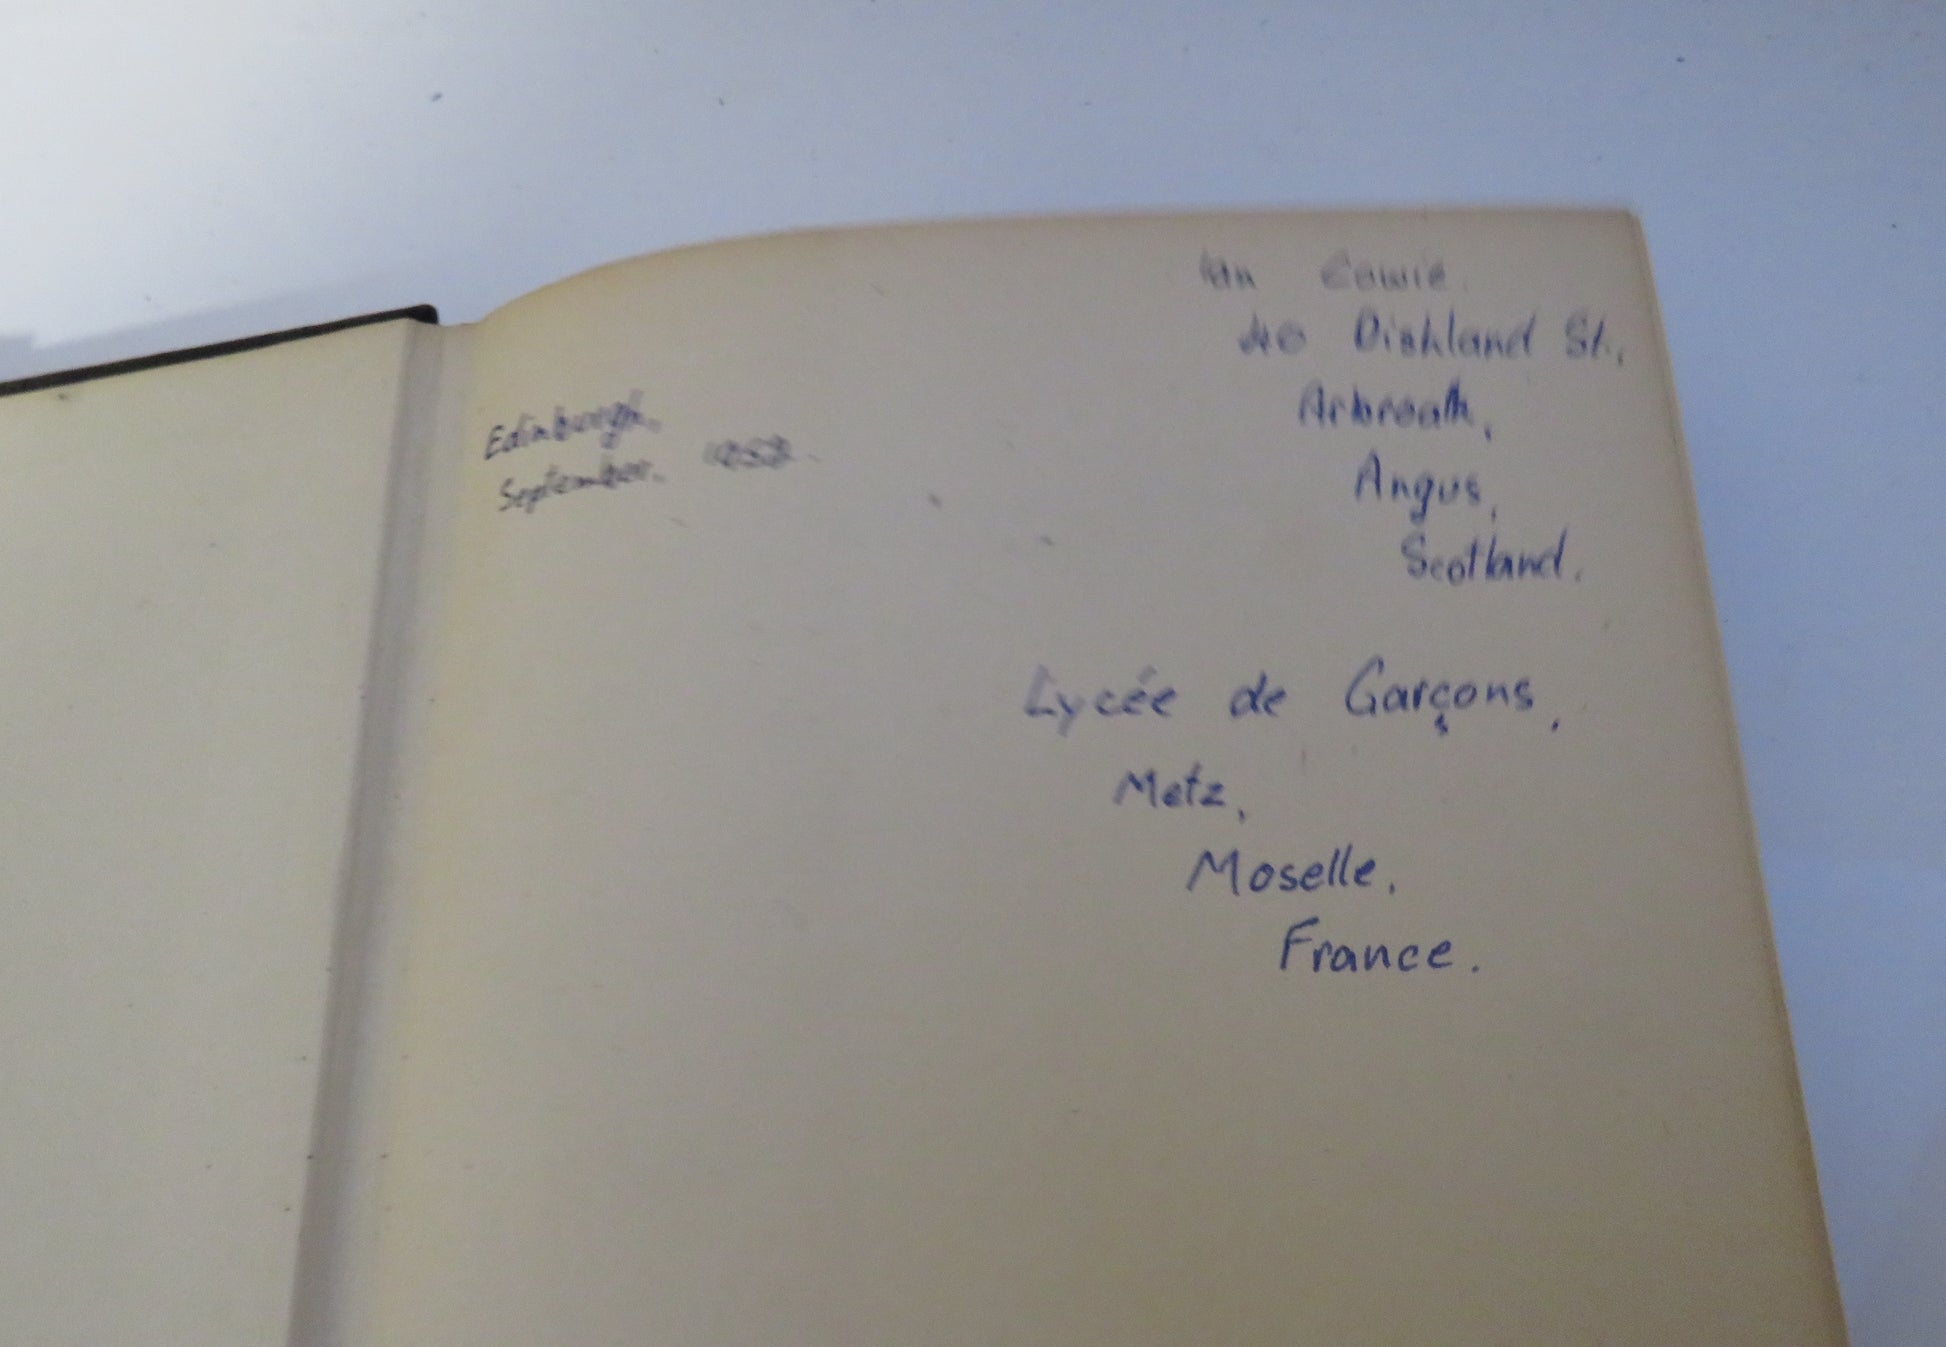 Ian Cowie.
40 Dishland St.,
Arbroath,
Angus,
Scotland.
Edinburgh.
September.
Lycée de Garçons,
Metz,
Moselle.
France.